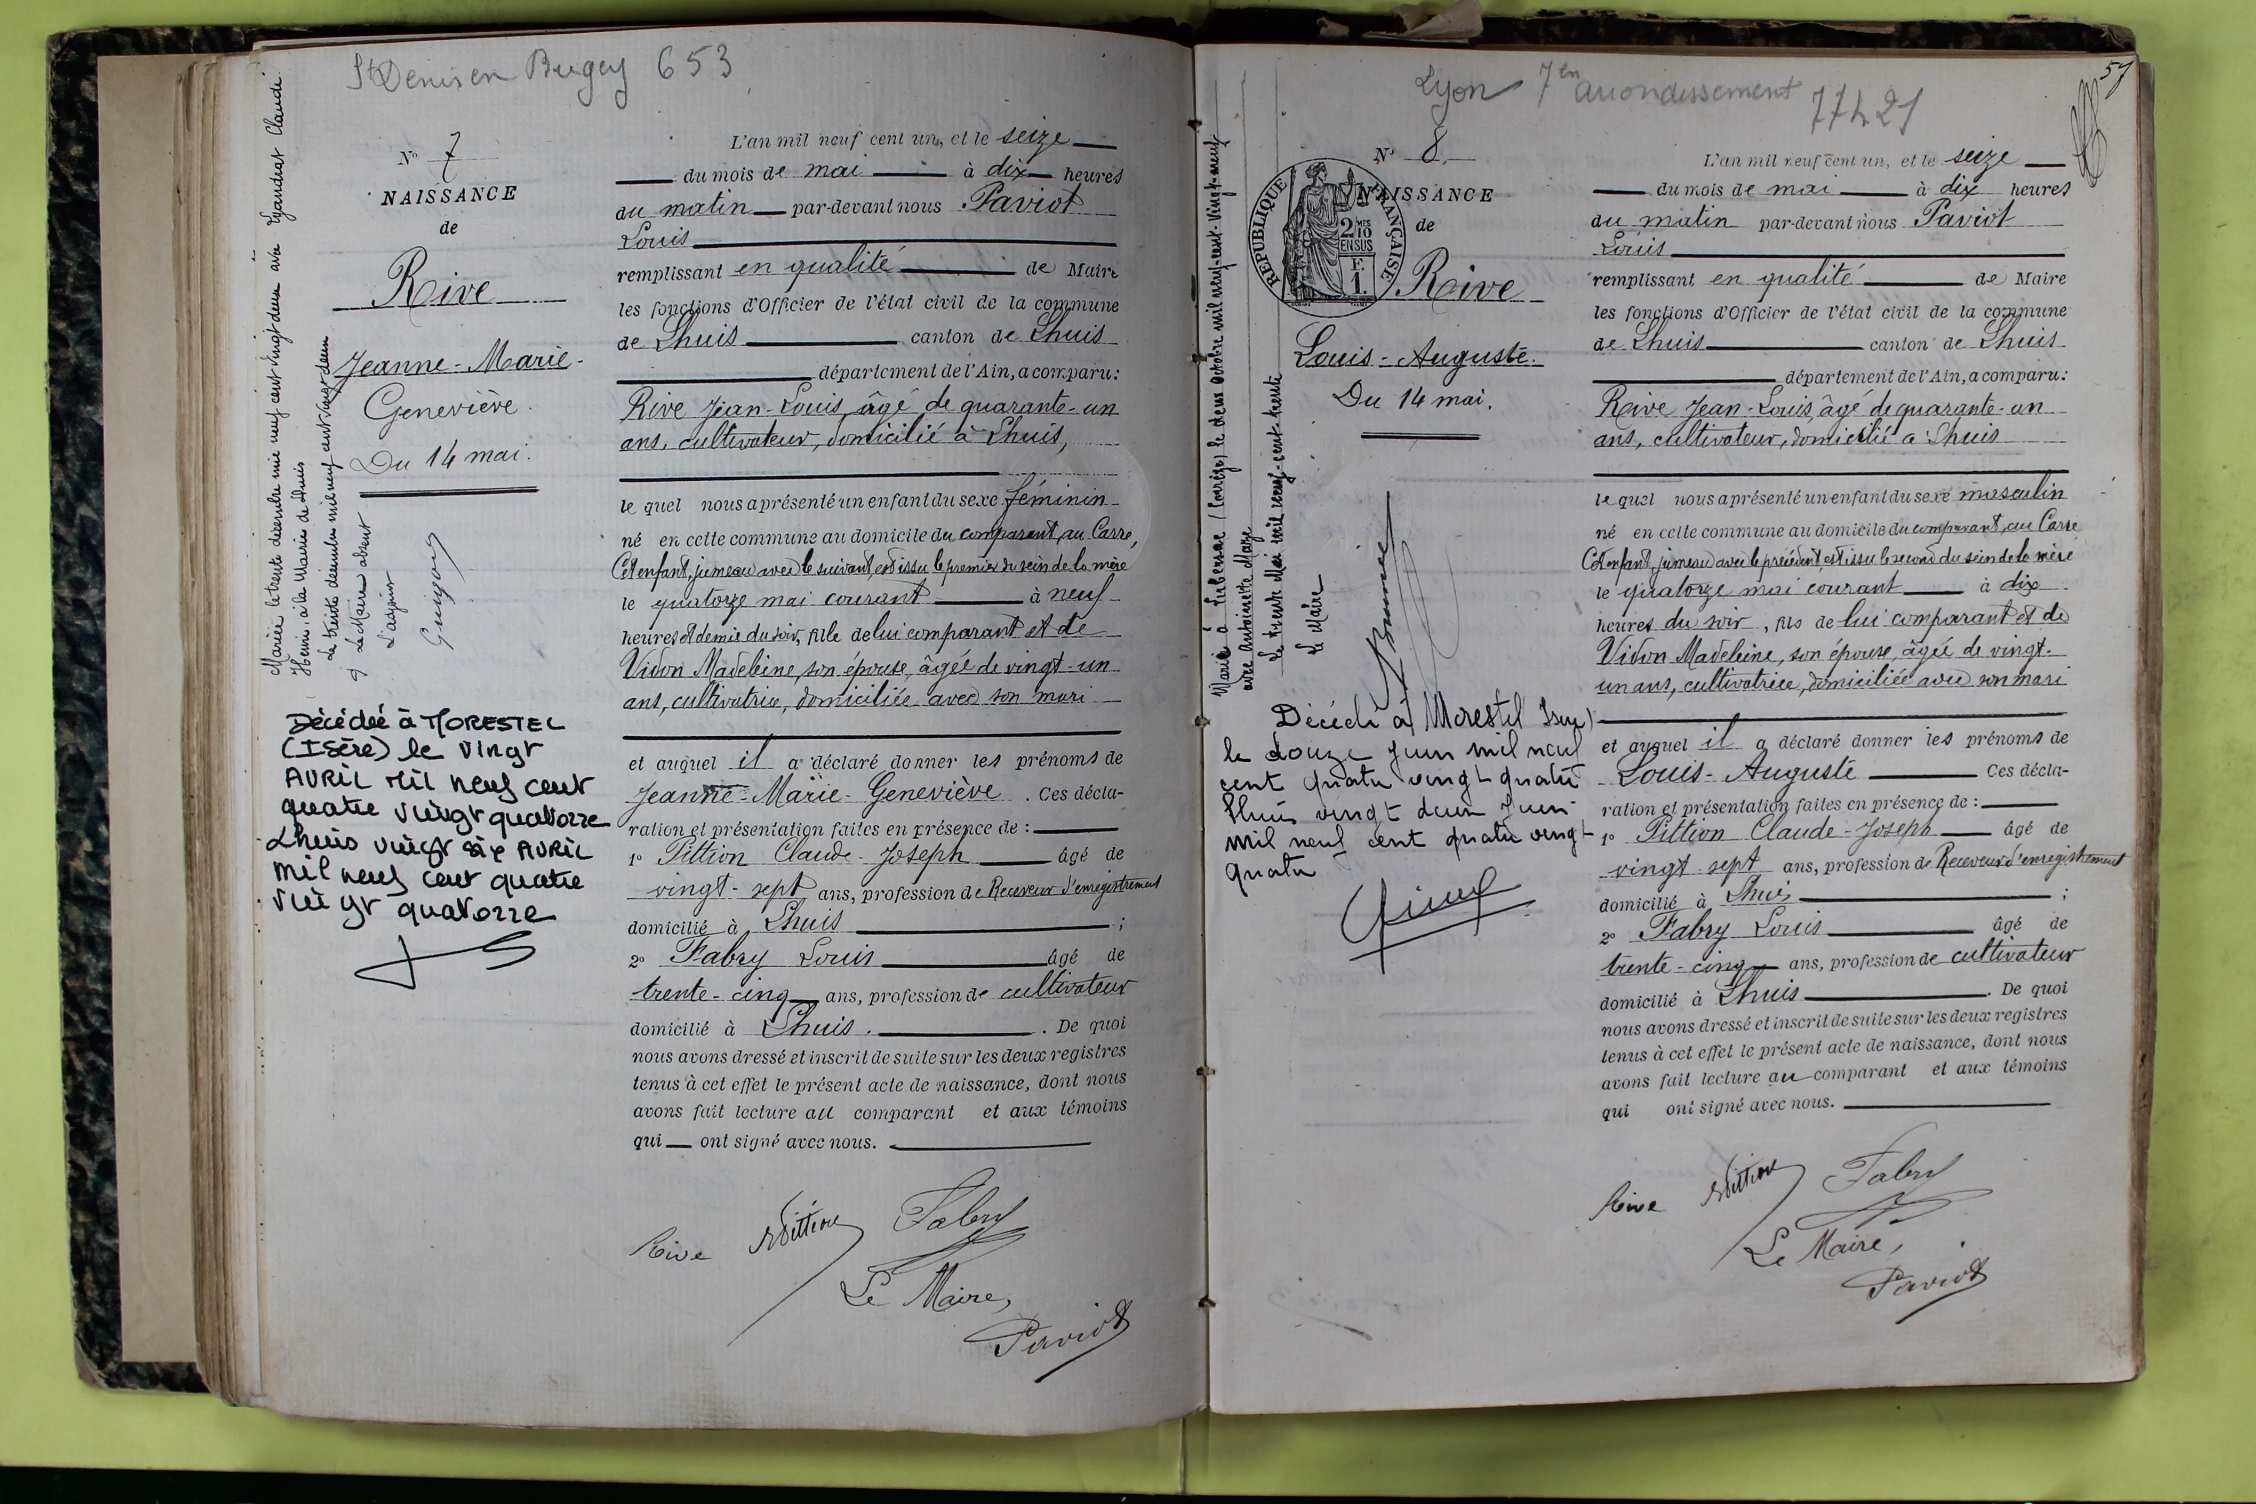 St Denis en Bugey 653
N° 7
NAISSANCE
de
Rive
Jeanne-Marie-
Geneviève.
Du 14 mai.
Mariée le trente décembre mil neuf cent vingt deux avec Claude
Henri, à la Mairie de Lhuis
Le trente décembre mil neuf cent vingt deux
Le Maire absent
L'adjoint
Décédée à MORESTEL
(ISère) le vingt
AVRIL Mil neuf cent
quatre vingt quatorze
Lhuis vingt six AVRIL
mil neuf cent quatre
vingt quatorze
L'an mil neuf cent un, et le seize
du mois de mai à dix heures
du matin par-devant nous Paviot
Louis
remplissant en qualité de Maire
les fonctions d'Officier de l'état civil de la commune
de Lhuis canton de Lhuis
département de l'Ain, a comparu:
Rive Jean-Louis, âgé de quarante-un
ans, cultivateur, domicilié à Lhuis,
le quel nous a présenté un enfant du sexe féminin
né en cette commune au domicile du comparant, au Carre,
Cet enfant, jumeau avec le suivant, est issu le premier du sein de la mère
le quatorze mai courant à neuf
heures et demie du soir, fille de lui comparant et de
Vidon Madeleine, son épouse, âgée de vingt-un
ans, cultivatrice, domiciliée avec son mari
et auquel il a déclaré donner les prénoms de
Jeanne-Marie-Geneviève. Ces décla-
ration et présentation faites en présence de :
1° Pittion Claude-Joseph âgé de
vingt-sept ans, profession de Receveur d'enregistrement
domicilié à Lhuis ;
2° Fabry Louis âgé de
trente-cinq ans, profession de cultivateur
domicilié à Lhuis. De quoi
nous avons dressé et inscrit de suite sur les deux registres
tenus à cet effet le présent acte de naissance, dont nous
avons fait lecture au comparant et aux témoins
qui ont signé avec nous.
Rive Pittion Fabry
Le Maire,
Paviot
57
Lyon 7en arrondissement
77421
N° 8
NAISSANCE
de
RÉPUBLIQUE FRANÇAISE
2/10
EN SUS
F.
1.
Rive
Louis-Auguste.
Du 14 mai.
Marié à Lubersac (Corrèze) le deux Octobre mil neuf-cent-vingt-neuf
avec Antoinette
Le trente Mai mil neuf-cent-trente
Le Maire
Décédé à Morestel Isère)
le douze Juin mil neuf
cent quatre vingt quatre
Lhuis vingt deux Juin
mil neuf cent quatre vingt
quatre
L'an mil neuf cent un, et le seize
du mois de mai à dix heures
du matin par-devant nous Paviot
Louis
remplissant en qualité de Maire
les fonctions d'Officier de l'état civil de la commune
de Lhuis canton de Lhuis
département de l'Ain, a comparu:
Rive Jean-Louis, âgé de quarante-un
ans, cultivateur, domicilié à Lhuis
le quel nous a présenté un enfant du sexe masculin
né en cette commune au domicile du comparant, au Carre
Cet enfant, jumeau avec le précédent, est issu le second du sein de la mère
le quatorze mai courant à dix
heures du soir, fils de lui comparant et de
Vidon Madeleine, son épouse, âgée de vingt-
un ans, cultivatrice, domiciliée avec son mari
et auquel il a déclaré donner les prénoms de
Louis-Auguste Ces décla-
ration et présentation faites en présence de :
1° Pittion Claude-Joseph âgé de
vingt-sept ans, profession de Receveur d'enregistrement
domicilié à Lhuis ;
2° Fabry Louis âgé de
trente-cinq ans, profession de cultivateur
domicilié à Lhuis. De quoi
nous avons dressé et inscrit de suite sur les deux registres
tenus à cet effet le présent acte de naissance, dont nous
avons fait lecture au comparant et aux témoins
qui ont signé avec nous.
Rive Pittion Fabry
Le Maire,
Paviot